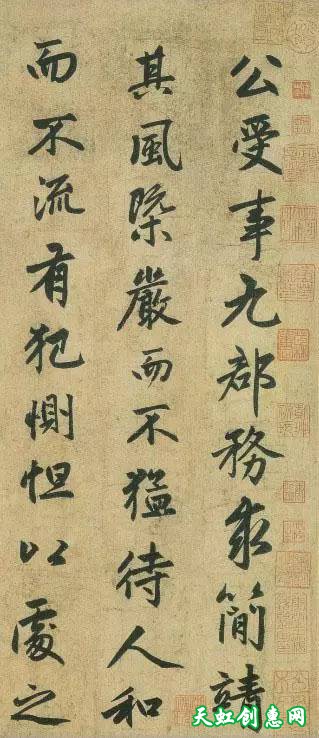 公受事九郡務求簡靖
其風檗嚴而不猛待人和
而不流有犯惻怛以處之
天虹创惠网